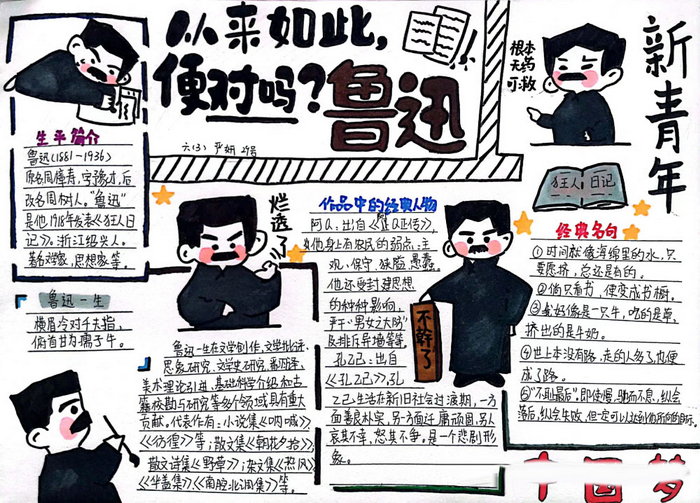 从来如此,
便对吗?
鲁迅
六(3) 严妍 29号
新青年
根本
无药
可救
狂人日记
生平简介
鲁迅(1881-1936)
原名周樟寿,字豫才,后
改名周树人。"鲁迅"
是他1918年发表《狂人日
记》。浙江绍兴人。
著名学家、思想家等。
鲁迅一生
横眉冷对千夫指,
俯首甘为孺子牛。
烂透了
鲁迅一生在文学创作,文学批评、
思想研究、文学史研究、翻译、
美术理论引进、基础科学介绍和古
籍校勘与研究等多个领域具有重大
贡献。代表作有:小说集《呐喊》
《彷徨》等;散文集《朝花夕拾》,
散文诗集《野草》;杂文集《热风》
《华盖集》《南腔北调集》等。
作品中的经典人物
阿Q:出自《阿Q正传》,
他身上有农民的弱点:主
观、保守、狭隘、愚蠢。
他还受封建思想
的种种影响,
严于"男女之大防"
及排斥异墙等。
孔乙己:出自
《孔乙己》,孔
乙己生活在新旧社会过渡期,一方
面善良朴实,另一方面迂腐顽固,别人
哀其不幸、怒其不争,是一个悲剧形
象。
不干了
经典名句
①时间就像海绵里的水,只
要愿挤,总还是有的。
②倘只看书,便变成书橱。
③我好像是一只牛,吃的是草,
挤出的是牛奶。
④世上本没有路,走的人多了,也便
成了路。
⑤"不耻最后",即使慢,驰而不息,纵会
落后,纵会失败,但一定可以达到他所向的目标。
中国梦